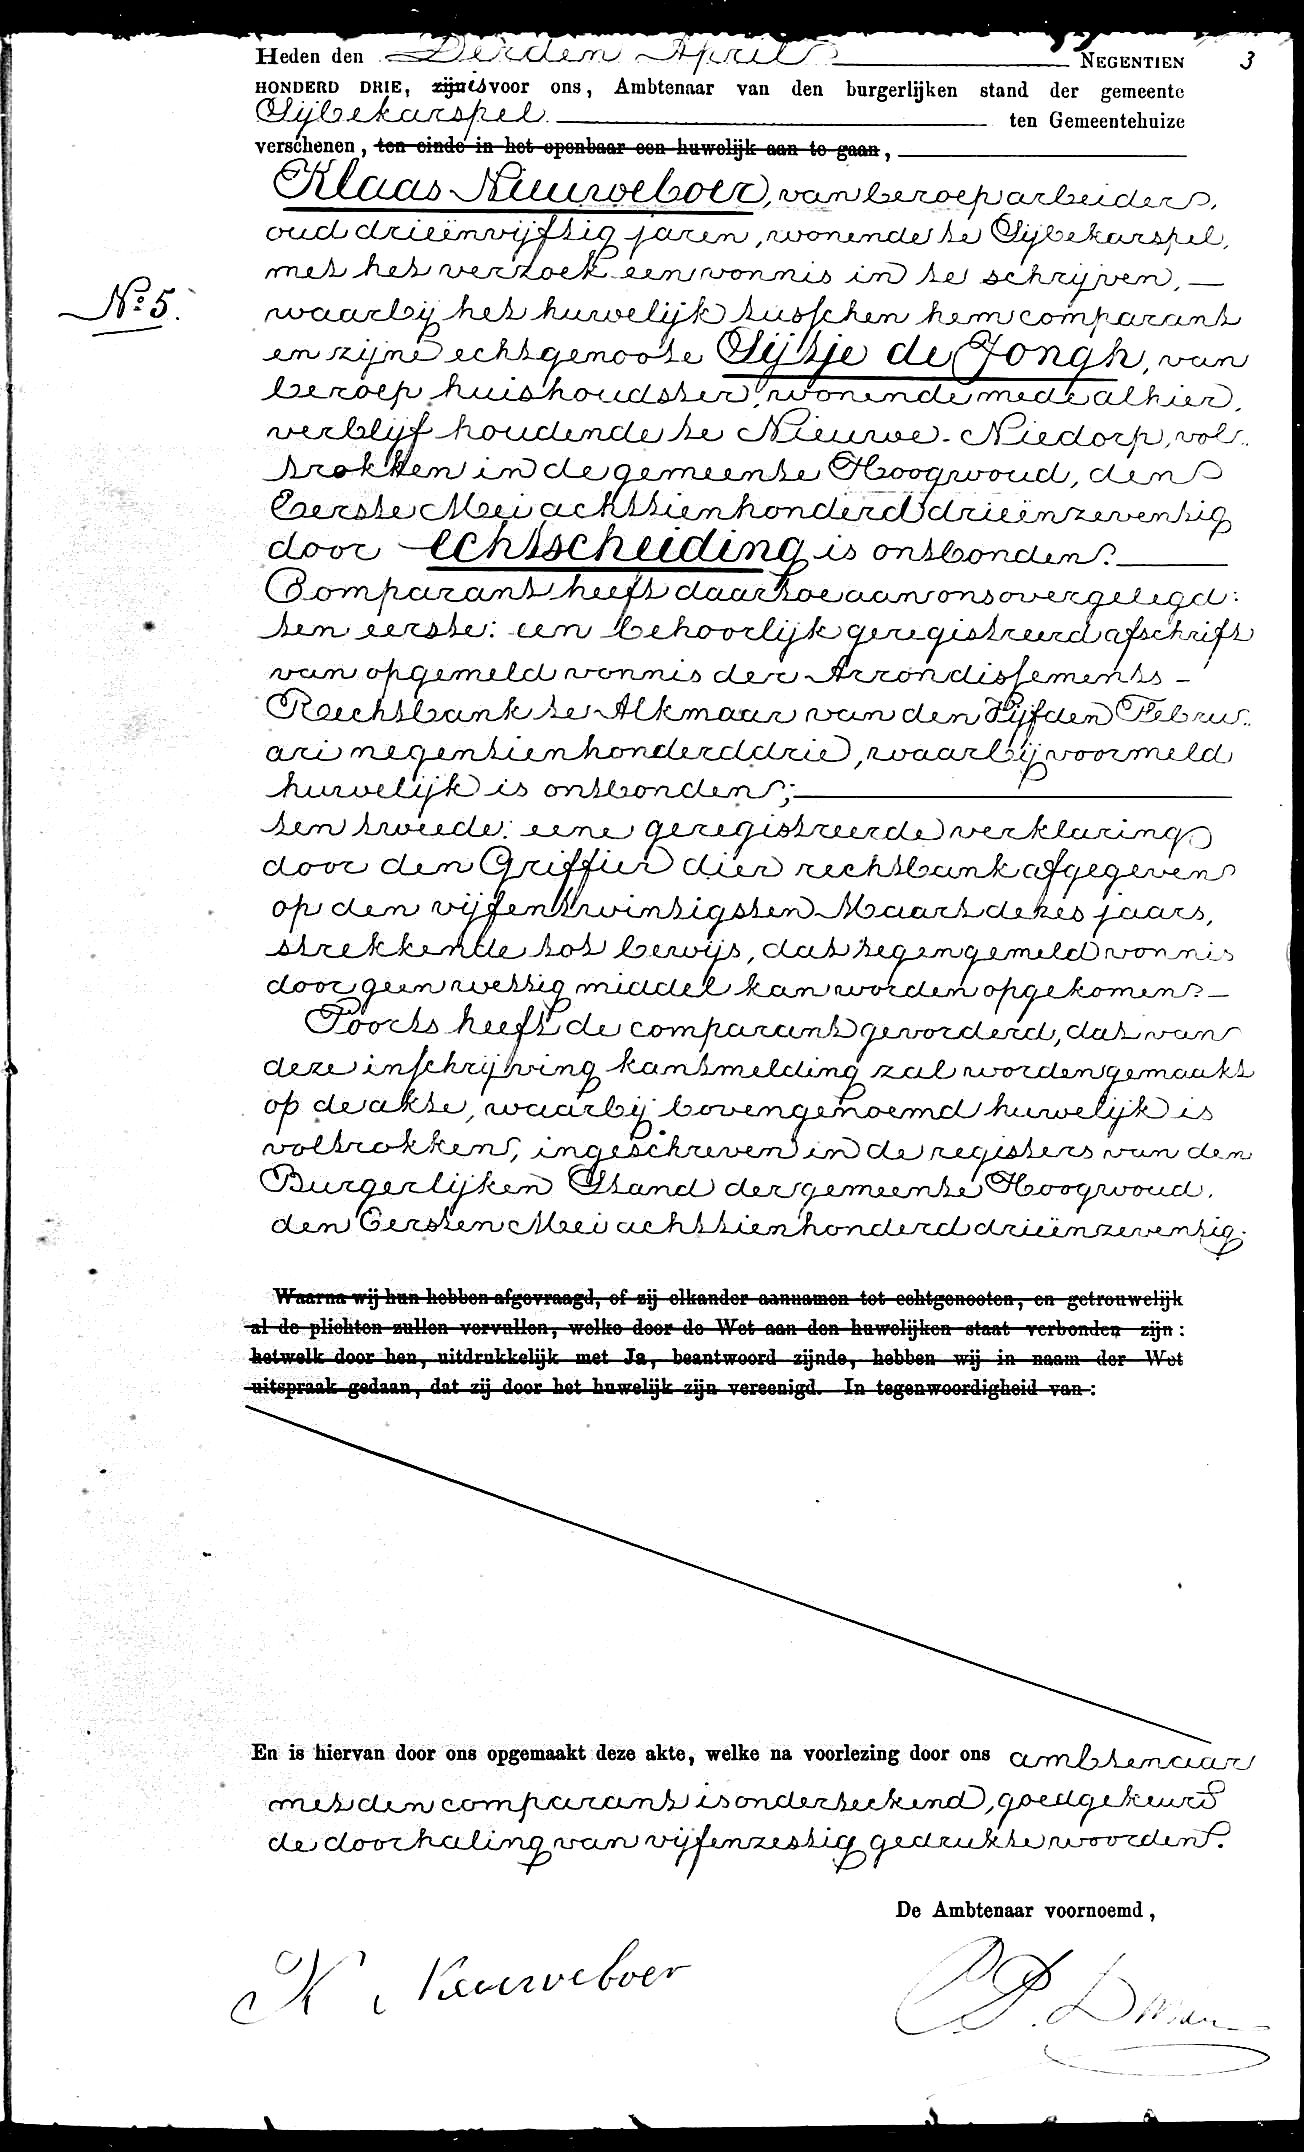 Heden den Derden April NEGENTIEN 3
HONDERD DRIE, zijn is voor ons, Ambtenaar van den burgerlijken stand der gemeente
Sijbekarspel ten Gemeentehuize
verschenen, ten einde in het openbaar een huwelijk aan te gaan,
Klaas Nieuweboer, van beroep arbeider,
oud drieënvijftig jaren, wonende te Sijbekarspel,
met het verzoek een vonnis in te schrijven, —
No 5.
waarbij het huwelijk tusschen hem comparant
en zijne echtgenoote Sijtje de Jongh, van
beroep huishoudster, wonende mede alhier,
verblijf houdende te Nieuwe-Niedorp, vol-
trokken in de gemeente Hoogwoud, den
Eerste Mei achttienhonderd drieënzeventig
door echtscheiding is ontbonden.
Comparant heeft daartoe aan ons overgelegd:
ten eerste: een behoorlijk geregistreerd afschrift
van opgemeld vonnis der Arrondissements-
Rechtbank te Alkmaar van den Vijfden Febru-
ari negentienhonderddrie, waarbij voormeld
huwelijk is ontbonden;
ten tweede: eene geregistreerde verklaring
door den Griffier dier rechtbank afgegeven
op den vijfentwintigsten Maart dezes jaars,
strekkende tot bewijs, dat tegen gemeld vonnis
door geen wettig middel kan worden opgekomen. —
Voorts heeft de comparant gevorderd, dat van
deze inschrijving kantmelding zal worden gemaakt
op de akte, waarbij bovengenoemd huwelijk is
voltrokken, ingeschreven in de registers van den
Burgerlijken Stand der gemeente Hoogwoud,
den Eersten Mei achttienhonderd drieënzeventig.
Waarna wij hun hebben afgevraagd, of zij elkander aannamen tot echtgenooten, en getrouwelijk
al de plichten zullen vervullen, welke door de Wet aan den huwelijken staat verbonden zijn:
hetwelk door hen, uitdrukkelijk met Ja, beantwoord zijnde, hebben wij in naam der Wet
uitspraak gedaan, dat zij door het huwelijk zijn vereenigd. In tegenwoordigheid van:
En is hiervan door ons opgemaakt deze akte, welke na voorlezing door ons ambtenaar
met den comparant is onderteekend, goedgekeurd
de doorhaling van vijfenzestig gedrukte woorden.
De Ambtenaar voornoemd,
K Nieuweboer